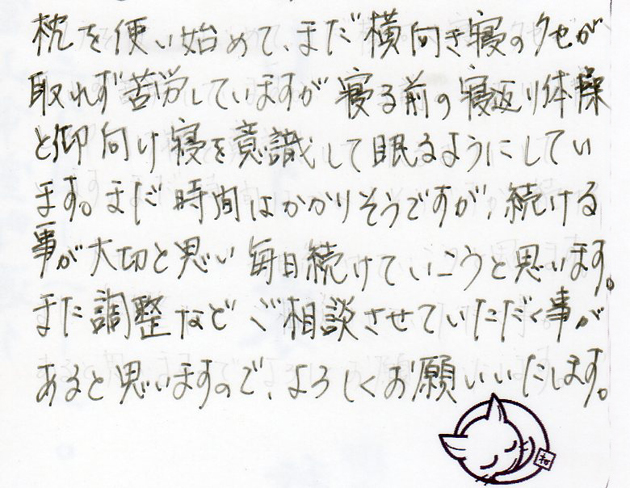 枕を使い始めて、まだ横向き寝のクセが
取れず苦労していますが寝る前の寝返り体操
と仰向け寝を意識して眠るようにしてい
ます。まだ時間はかかりそうですが、続ける
事が大切と思い毎日続けていこうと思います。
また調整などご相談させていただく事が
あると思いますので、よろしくお願いいたします。
和